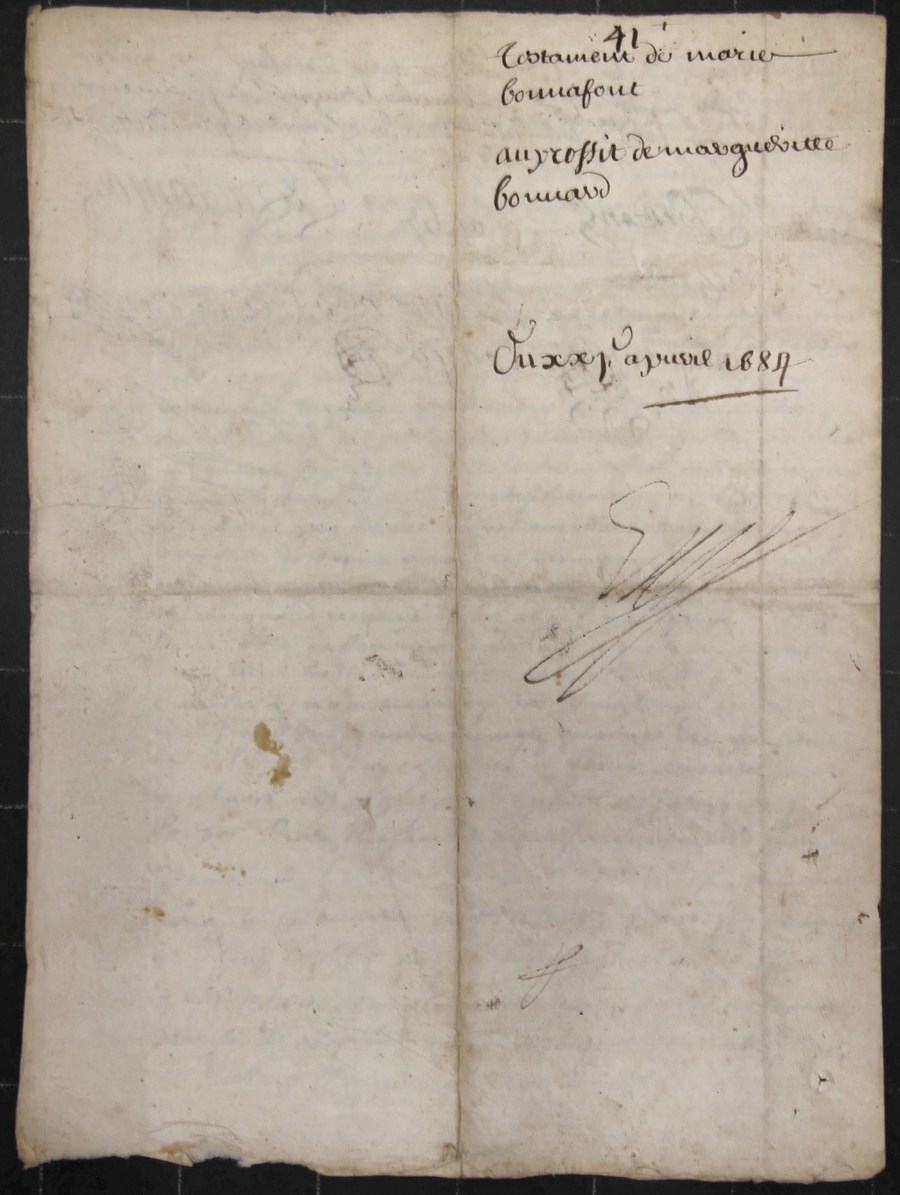 41
Testament de marie
bonnafont
au proffit de margueritte
bonnard
Du xxj.e apvril 1684